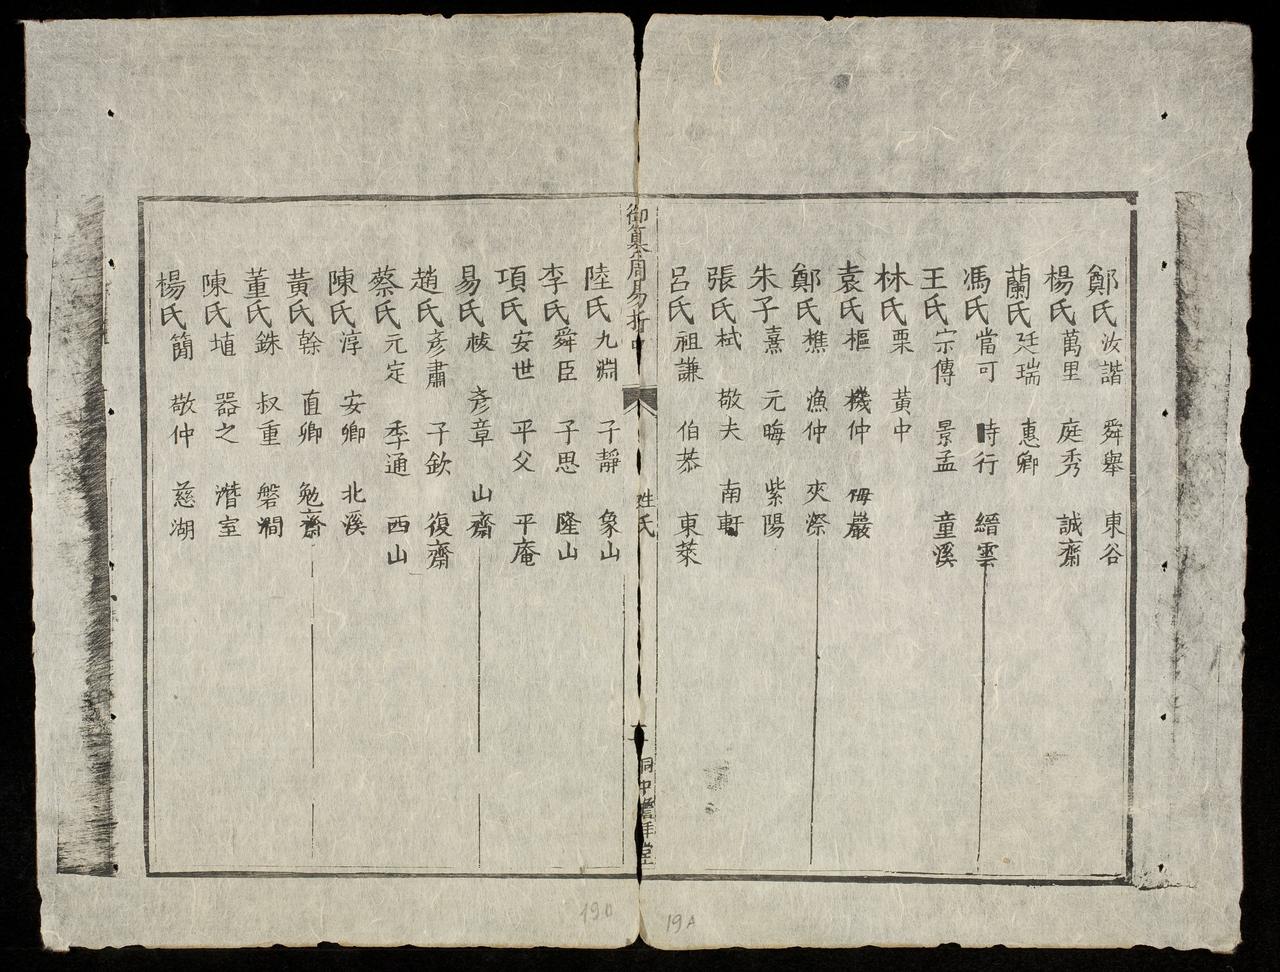 鄭氏汝諧　舜舉　東谷
楊氏萬里　庭秀　誠齋
蘭氏廷瑞　惠卿
馮氏當可　時行　縉雲
王氏宗傳　景孟　童溪
林氏栗　黃中
袁氏樞　機仲　梅巖
鄭氏樵　漁仲　夾漈
朱子熹　元晦　紫陽
張氏栻　敬夫　南軒
呂氏祖謙　伯恭　東萊
御纂周易折中　姓氏
陸氏九淵　子靜　象山
李氏舜臣　子思　隆山
項氏安世　平父　平庵
易氏祓　彥章　山齋
趙氏彥肅　子欽　復齋
蔡氏元定　季通　西山
陳氏淳　安卿　北溪
黃氏榦　直卿　勉齋
董氏銖　叔重　磐澗
陳氏埴　器之　潛室
楊氏簡　敬仲　慈湖
19b
19A